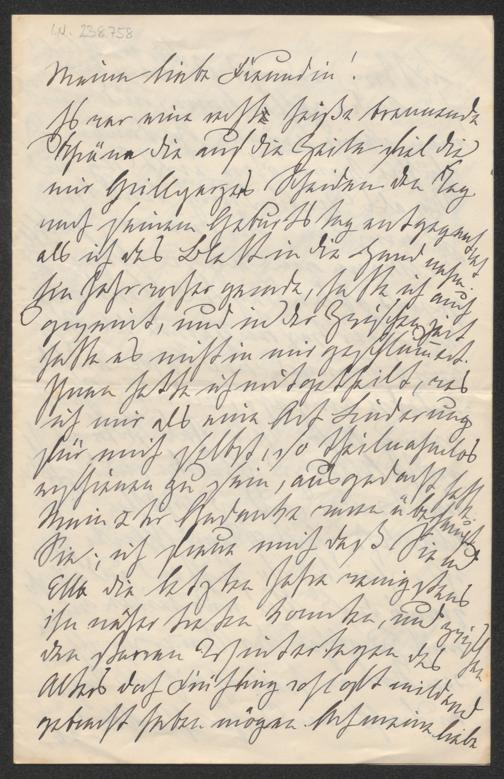 I.N. 238.758
Meine liebe Freundin!
Es war eine recht heiße brennende
Thräne die auf die Zeile fiel die
mir Grillparzers Scheiden den Tag
nach seinem Geburtstag entgegen
als ich das Blatt in die Hand nahm.
Ein Jahr vorher gerade, hatte ich auch
geweint, und in der Zwischenzeit
hatte es nicht in mir geschlummert.
Ihnen hatte ich mitgetheilt, was
ich mir als eine Art Linderung
für mich selbst, so theilnahmlos
erschienen zu sein, ausgedacht hatte
Mein Gedanke
Sie; ich freue mich daß Sie und
Ella die letzten Jahre wenigstens
ihm näher treten konnten, und
den Wintertagen des
Alters doch Frühling mildernd
gebracht haben mögen. Ach meine liebe